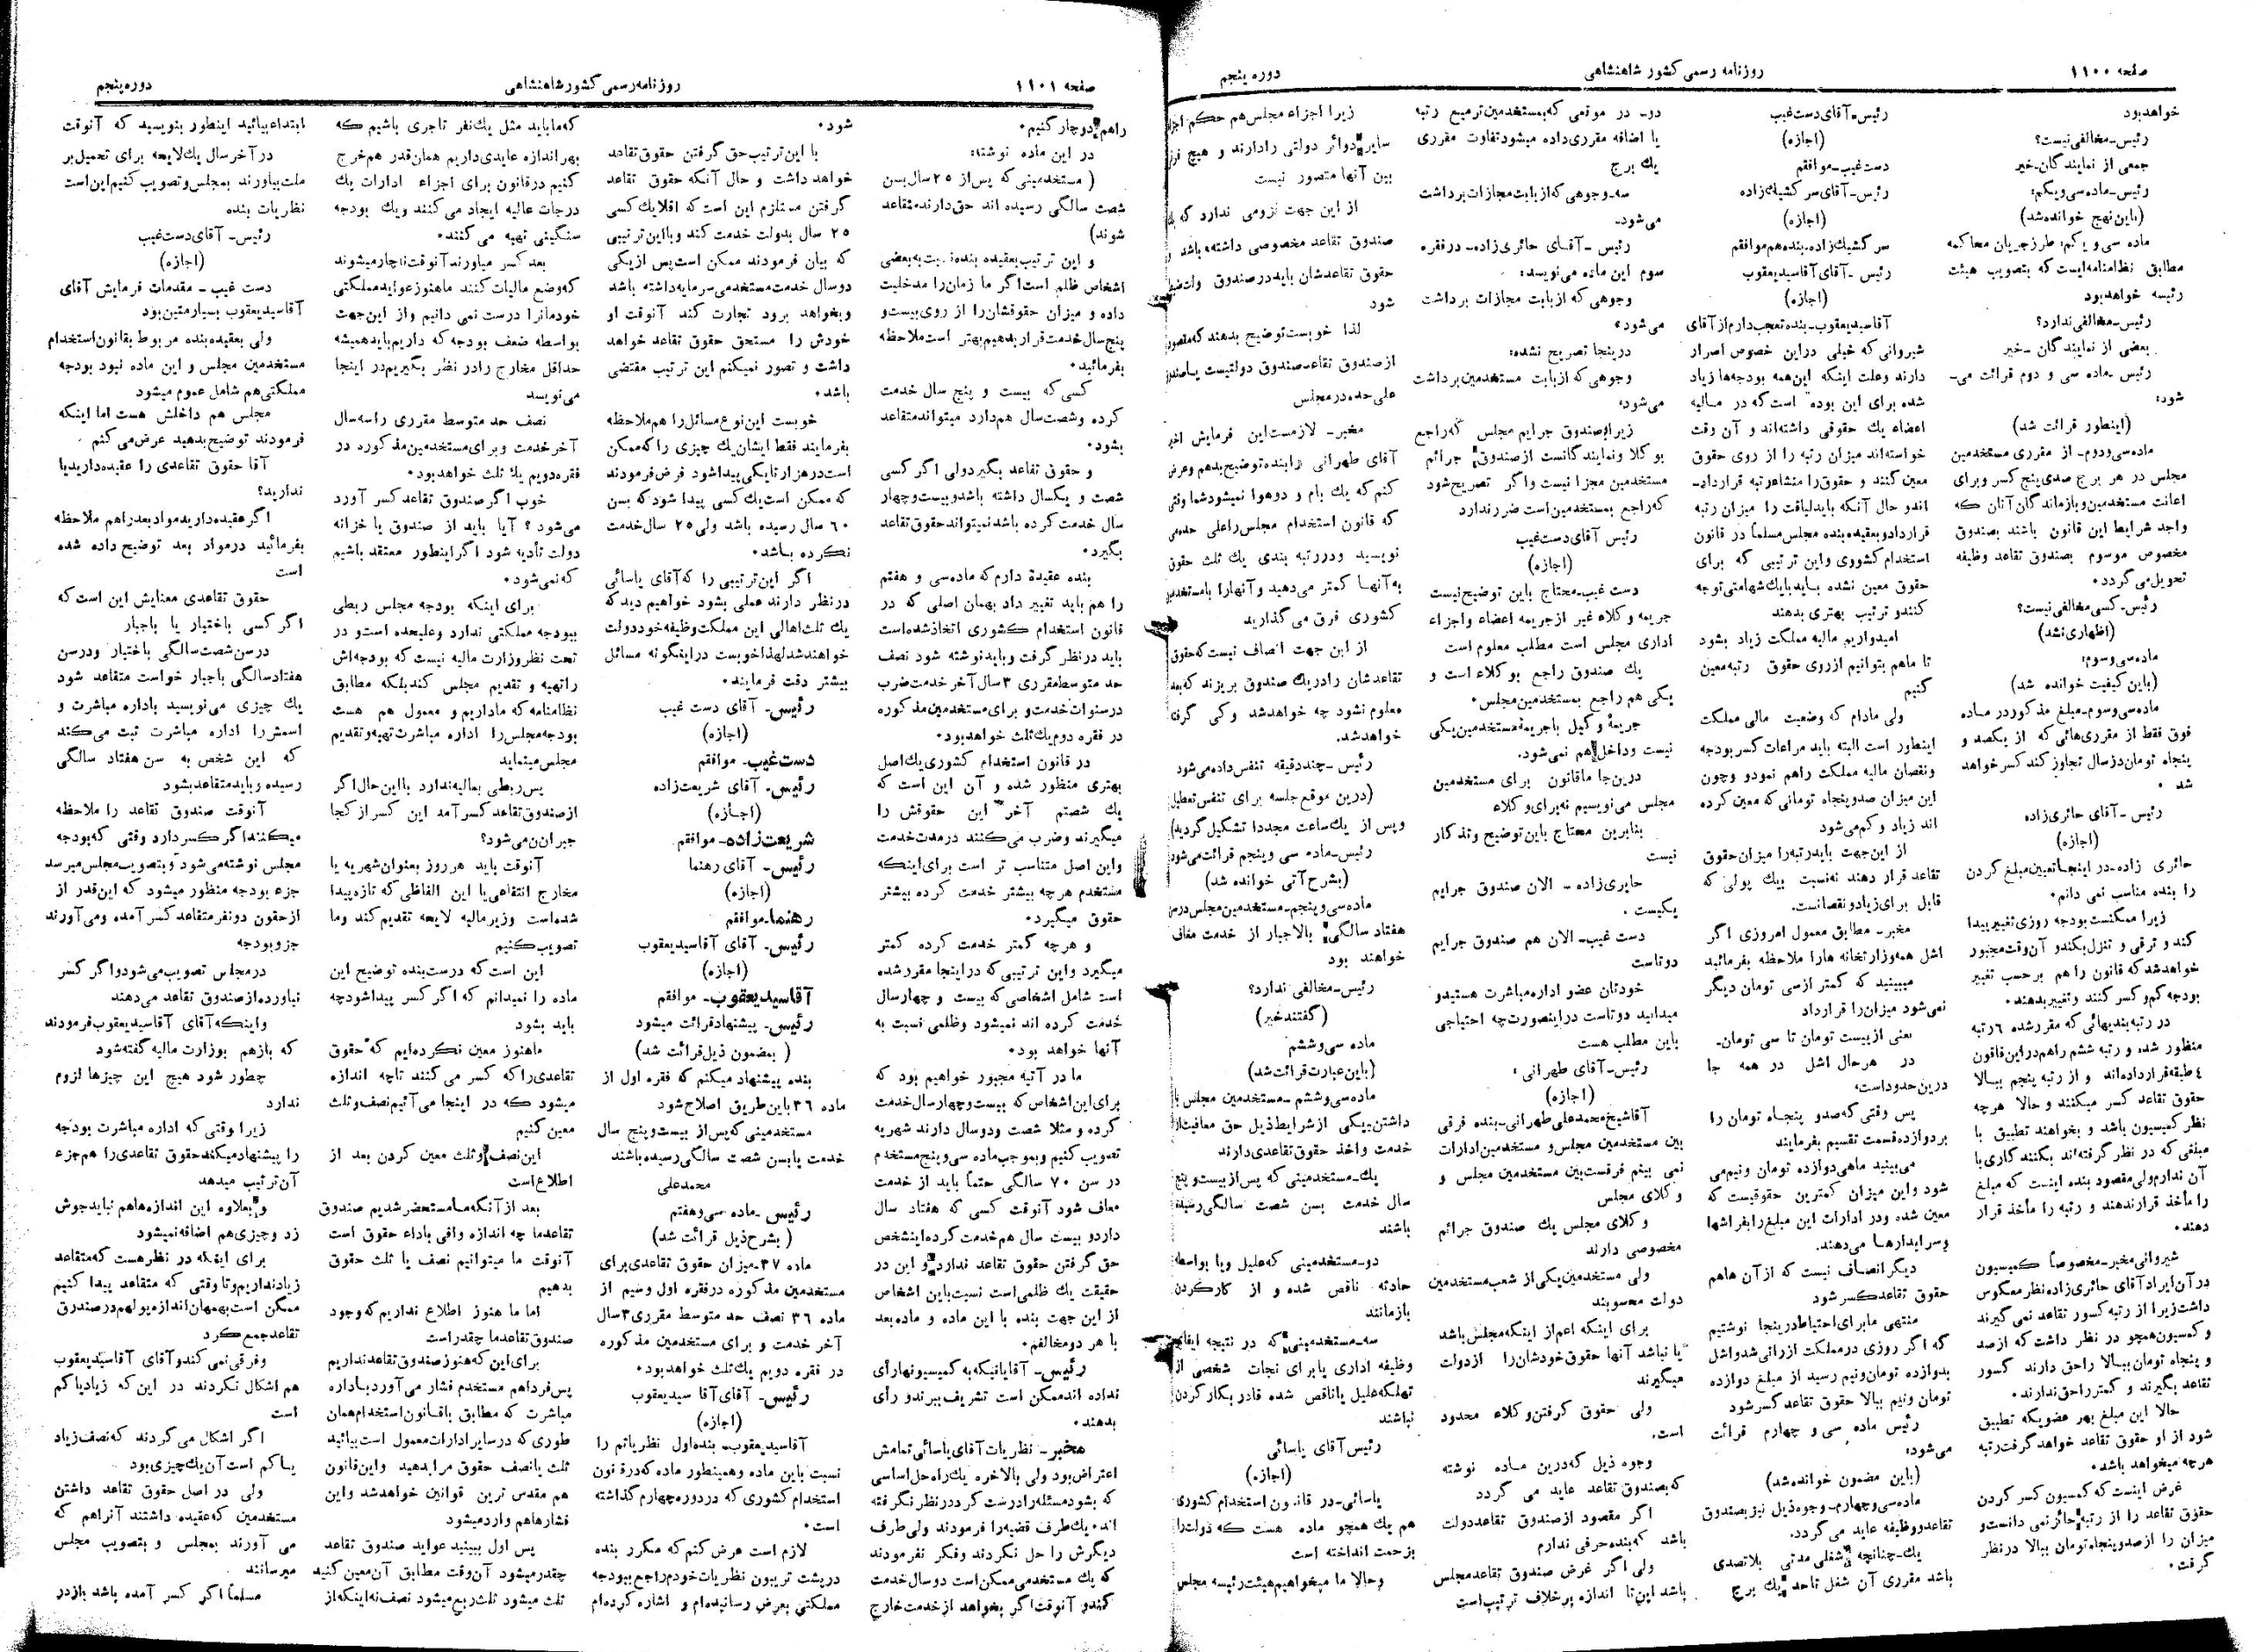 صفحه ۱۱۰۰
روزنامه رسمی کشور شاهنشاهی
دوره پنجم
خواهد بود
رئیس_مخالفی نیست؟
جمعی از نمایندگان_خیر
رئیس_ماده سی و یکم:
(باین نهج خوانده شد)
ماده سی و یکم: طرز جریان محاکمه
مطابق نظامنامه ایست که بتصویب هیئت
رئیسه خواهد بود
رئیس_مخالفی ندارد؟
بعضی از نمایندگان_خیر
رئیس_ماده سی و دوم قرائت می_
شود:
(اینطور قرائت شد)
ماده سی و دوم_ از مقرری مستخدمین
مجلس در هر برج صدی پنج کسر و برای
اعانت مستخدمین و بازماندگان آنان که
واجد شرایط این قانون باشند بصندوق
مخصوص موسوم بصندوق تقاعد وظیفه
تحویل می گردد.
رئیس_کسی مخالفی نیست؟
(اظهاری نشد)
ماده سی و سوم:
(باین کیفیت خوانده شد)
ماده سی و سوم_مبلغ مذکور در ماده
فوق فقط از مقرری هائی که از یکصد و
پنجاه تومان در سال تجاوز کند کسر خواهد
شد.
رئیس_آقای حائری زاده
(اجازه)
حائری زاده_در اینجا تعیین مبلغ کردن
را بنده مناسب نمی دانم.
زیرا ممکنست بودجه روزی تغییر پیدا
کند و ترقی و تنزل بکند و آن وقت مجبور
خواهد شد که قانون را هم بر حسب تغییر
بودجه کم و کسر کنند و تغییر بدهند.
در رتبه بندیهائی که مقرر شده ۶ رتبه
منظور شده و رتبه ششم را هم در این قانون
۴ طبقه قرار داده اند و از رتبه پنجم ببالا
حقوق تقاعد کسر میکنند و حالا هرچه
نظر کمیسیون باشد و بخواهند تطبیق با
مبلغی که در نظر گرفته اند بکنند کاری با
آن ندارم ولی مقصود بنده اینست که مبلغ
را مأخذ قرار ندهند و رتبه را مأخذ قرار
دهند.
شیروانی مخبر_مخصوصاً کمیسیون
در آن ایراد آقای حائری زاده نظر معکوس
داشت زیرا از رتبه کسور تقاعد نمی گیرند
و کمسیون همچو در نظر داشت که از صد
و پنجاه تومان ببالا را حق دارند کسور
تقاعد بگیرند و کمتر را حق ندارند.
حالا این مبلغ بهر عضویکه تطبیق
شود از او حقوق تقاعد خواهد گرفت رتبه
هرچه میخواهد باشد.
غرض اینست که کمسیون کسر کردن
حقوق تقاعد را از رتبه جائز نمی دانست و
میزان را از صد و پنجاه تومان ببالا در نظر
گرفت.
رئیس_آقای دست غیب
(اجازه)
دست غیب_موافقم
رئیس_آقای سرکشیک زاده
(اجازه)
سرکشیک زاده_بنده هم موافقم
رئیس_آقای آقا سید یعقوب
(اجازه)
آقا سید یعقوب_بنده تعجب دارم از آقای
شیروانی که خیلی در این خصوص اصرار
دارند وعلت اینکه این همه بودجه ها زیاد
شده برای این بوده است که در مالیه
اعضاء یک حقوقی داشته اند و آن وقت
خواسته اند میزان رتبه را از روی حقوق
معین کنند و حقوق را منشاء رتبه قرار داد_
اند و حال آنکه باید لیاقت را میزان رتبه
قرار داد و بعقیده بنده مجلس مسلماً در قانون
استخدام کشوری و این ترتیبی که برای
حقوق معین نشده باید با یک شهامتی توجه
کنند و ترتیب بهتری بدهند
امیدواریم مالیه مملکت زیاد بشود
تا ما هم بتوانیم از روی حقوق رتبه معین
کنیم
ولی مادام که وضعیت مالی مملکت
اینطور است البته باید مراعات کسر بودجه
و نقصان مالیه مملکت را هم نمود و چون
این میزان صد و پنجاه تومانی که معین کرده
اند زیاد و کم می شود
از این جهت باید رتبه را میزان حقوق
تقاعد قرار دهند نه نسبت بیک پولی که
قابل برای زیاد و نقصانست.
مخبر_ مطابق معمول امروزی اگر
اشل همه وزارتخانه هارا ملاحظه بفرمائید
میبینید که کمتر از سی تومان دیگر
نمی شود میزان را قرار داد
یعنی از بیست تومان تا سی تومان_
در هر حال اشل در همه جا
در این حدود است.
پس وقتی که صد و پنجاه تومان را
بر دوازده قسمت تقسیم بفرمایند
می بینید ماهی دوازده تومان و نیم می
شود و این میزان کمترین حقوقیست که
معین شده و در ادارات این مبلغ را بفراشها
و سرایدارها می دهند.
دیگر انصاف نیست که از آن ها هم
حقوق تقاعد کسر شود
منتهی ما برای احتیاط در اینجا نوشتیم
که اگر روزی در مملکت ارزانی شد و اشل
بدوازده تومان و نیم رسید از مبلغ دوازده
تومان و نیم ببالا حقوق تقاعد کسر شود
رئیس ماده سی و چهارم قرائت
می شود:
(باین مضمون خوانده شد)
ماده سی و چهارم_وجوه ذیل نیز بصندوق
تقاعد و وظیفه عاید می گردد.
یک_چنانچه شغلی مدتی بلاتصدی
باشد مقرری آن شغل تا حد یک برج
دو_ در موقعی که بمستخدمین ترمیم رتبه
یا اضافه مقرری داده میشود تفاوت مقرری
یک برج
سه_وجوهی که از بابت مجازات برداشت
می شود_
رئیس_آقای حائری زاده_ در فقره
سوم این ماده می نویسد:
وجوهی که از بابت مجازات برداشت
می شود.
در اینجا تصریح نشده:
وجوهی که از بابت مستخدمین برداشت
می شود،
زیرا صندوق جرایم مجلس که راجع
بوکلا و نمایندگانست از صندوق جرائم
مستخدمین مجزا نیست واگر تصریح شود
که راجع بمستخدمین است ضرر ندارد
رئیس آقای دست غیب
(اجازه)
دست غیب_محتاج باین توضیح نیست
جریمه وکلاء غیر از جریمه اعضاء و اجزاء
اداری مجلس است مطلب معلوم است
یک صندوق راجع بوکلاء است و
یکی هم راجع بمستخدمین مجلس.
جریمهٔ وکیل با جریمهٔ مستخدمین یکی
نیست و داخل هم نمی شود.
در این جا ما قانون برای مستخدمین
مجلس می نویسیم نه برای وکلاء
بنابرین محتاج باین توضیح و تذکار
نیست
حایری زاده_ الان صندوق جرایم
یکیست.
دست غیب_الان هم صندوق جرایم
دو تاست
خودتان عضو اداره مباشرت هستید و
میدانید دو تاست در اینصورت چه احتیاجی
باین مطلب هست
رئیس_آقای طهرانی.
(اجازه)
آقا شیخ محمدعلی طهرانی_بنده فرقی
بین مستخدمین مجلس و مستخدمین ادارات
نمی بینم فرقست بین مستخدمین مجلس و
وکلای مجلس
وکلای مجلس یک صندوق جرائم
مخصوصی دارند
ولی مستخدمین یکی از شعب مستخدمین
دولت محسوبند
برای اینکه اعم از اینکه مجلس باشد
یا نباشد آنها حقوق خودشان را از دولت
میگیرند
ولی حقوق گرفتن وکلاء محدود
است.
وجوه ذیل که در این ماده نوشته
که بصندوق تقاعد عاید می گردد
اگر مقصود از صندوق تقاعد دولت
باشد که بنده حرفی ندارم
ولی اگر غرض صندوق تقاعد مجلس
باشد این تا اندازه بر خلاف ترتیب است
زیرا اجزاء مجلس هم حکم اجزاء
سایر دوائر دولتی را دارند و هیچ فرق
بین آنها متصور نیست
از این جهت لزومی ندارد که
صندوق تقاعد مخصوصی داشته باشد
حقوق تقاعدشان باید در صندوق
شود
لذا خوبست توضیح بدهند که مقصود
از صندوق تقاعد_صندوق دولتیست یا صندوق
علی حده در مجلس
مخبر_ لازمست این فرمایش اخیر
آقای طهرانی را بنده توضیح بدهم و عرض
کنم که یک بام و دو هوا نمیشود شما وقتی
که قانون استخدام مجلس را علی حده می
نویسید و در رتبه بندی یک ثلث حقوق
به آنها کمتر می دهید و آنها را با مستخدمین
کشوری فرق می گذارید
از این جهت انصاف نیست که حقوق
تقاعدشان را در یک صندوق بریزند که بعد
معلوم نشود چه خواهد شد و کی گرفته
خواهد شد.
رئیس_چند دقیقه تنفس داده می شود
(در این موقع جلسه برای تنفس تعطیل
و پس از یک ساعت مجددا تشکیل گردید)
رئیس_ماده سی و پنجم قرائت می شود
(بشرح آتی خوانده شد)
ماده سی و پنجم_مستخدمین مجلس در سن
هفتاد سالگی بالاجبار از خدمت معاف
خواهند بود
رئیس_مخالفی ندارد؟
(گفتند خیر)
ماده سی و ششم
(باین عبارت قرائت شد)
ماده سی و ششم_مستخدمین مجلس با
داشتن یکی از شرایط ذیل حق معافیت از
خدمت و اخذ حقوق تقاعدی دارند
یک_مستخدمینی که پس از بیست و پنج
سال خدمت بسن شصت سالگی رسیده
باشند
دو_مستخدمینی که علیل و یا بواسطه
حادثه ناقص شده و از کار کردن
بازمانند
سه_مستخدمینی که در نتیجه ایفای
وظیفه اداری یا برای نجات شخصی از
تهلکه علیل یا ناقص شده قادر بکار کردن
نباشند
رئیس آقای یاسائی
(اجازه)
یاسائی_در قانون استخدام کشوری
هم یک همچو ماده هست که دولت را
بزحمت انداخته است
و حالا ما میخواهیم هیئت رئیسه مجلس
صفحه ۱۱۰۱
روزنامه رسمی کشور شاهنشاهی
دوره پنجم
را هم دوچار کنیم.
در این ماده نوشته:
(مستخدمینی که پس از ۲۵ سال بسن
شصت سالگی رسیده اند حق دارند متقاعد
شوند)
و این ترتیب بعقیده بنده نسبت به بعضی
اشخاص ظلم است اگر ما زمان را مدخلیت
داده و میزان حقوقشان را از روی بیست و
پنج سال خدمت قرار بدهیم بهتر است ملاحظه
بفرمائید.
کسی که بیست و پنج سال خدمت
کرده و شصت سال هم دارد میتواند متقاعد
بشود.
و حقوق تقاعد بگیرد ولی اگر کسی
شصت و یکسال داشته باشد و بیست و چهار
سال خدمت کرده باشد نمیتواند حقوق تقاعد
بگیرد.
بنده عقیدة دارم که ماده سی و هفتم
را هم باید تغییر داد بهمان اصلی که در
قانون استخدام کشوری اتخاذ شده است
باید در نظر گرفت و باید نوشته شود نصف
حد متوسط مقرری ۳ سال آخر خدمت ضرب
در سنوات خدمت و برای مستخدمین مذکوره
در فقره دوم یک ثلث خواهد بود.
در قانون استخدام کشوری یک اصل
بهتری منظور شده و آن این است که
یک شصتم آخر این حقوقش را
میگیرند و ضرب می کنند در مدت خدمت
و این اصل متناسب تر است برای اینکه
مستخدم هرچه بیشتر خدمت کرده بیشتر
حقوق میگیرد.
و هرچه کمتر خدمت کرده کمتر
میگیرد و این ترتیبی که در اینجا مقرر شده
است شامل اشخاصی که بیست و چهار سال
خدمت کرده اند نمیشود و ظلمی نسبت به
آنها خواهد بود.
ما در آتیه مجبور خواهیم بود که
برای این اشخاص که بیست و چهار سال خدمت
کرده و مثلا شصت و دو سال دارند شهریه
تصویب کنیم و بموجب ماده سی و پنج مستخدم
در سن ۷۰ سالگی حتماً باید از خدمت
معاف شود آنوقت کسی که هفتاد سال
دارد و بیست سال هم خدمت کرده اینشخص
حق گرفتن حقوق تقاعد ندارد و این در
حقیقت یک ظلمی است نسبت باین اشخاص
از این جهت بنده با این ماده و ماده بعد
با هر دو مخالفم.
رئیس_ آقایانیکه به کمیسیونها رأی
نداده اند ممکن است تشریف ببرند و رأی
بدهند.
مخبر_ نظریات آقای یاسائی تمامش
اعتراض بود ولی بالاخره یک راه حل اساسی
که بشود مسئله را درست کرد در نظر نگرفته
اند. یک طرف قضیه را فرمودند ولی طرف
دیگرش را حل نکردند و فکر نفرمودند
که یک مستخدمی ممکن است دو سال خدمت
کند و آنوقت اگر بخواهد از خدمت خارج
شود.
با این ترتیب حق گرفتن حقوق تقاعد
خواهد داشت و حال آنکه حقوق تقاعد
گرفتن مستلزم این است که اقلا یک کسی
۲۵ سال بدولت خدمت کند و با این ترتیبی
که بیان فرمودند ممکن است پس از یکی
دو سال خدمت مستخدمی سرمایه داشته باشد
و بخواهد برود تجارت کند آنوقت او
خودش را مستحق حقوق تقاعد خواهد
داشت و تصور نمیکنم این ترتیب مقتضی
باشد.
خوبست این نوع مسائل را هم ملاحظه
بفرمایند فقط ایشان یک چیزی را که ممکن
است در هزار تا یکی پیدا شود فرض فرمودند
که ممکن است یک کسی پیدا شود که بسن
۶۰ سال رسیده باشد ولی ۲۵ سال خدمت
نکرده باشد.
اگر این ترتیبی را که آقای یاسائی
در نظر دارند عملی بشود خواهیم دید که
یک ثلث اهالی این مملکت وظیفه خور دولت
خواهند شد لهذا خوبست در اینگونه مسائل
بیشتر دقت فرمایند.
رئیس_ آقای دست غیب
(اجازه)
دست غیب_ موافقم
رئیس_ آقای شریعت زاده
(اجازه)
شریعت زاده_ موافقم
رئیس_ آقای رهنما
(اجازه)
رهنما_موافقم
رئیس_ آقای آقا سید یعقوب
(اجازه)
آقا سید یعقوب_ موافقم
رئیس_ پیشنهاد قرائت میشود
(بمضمون ذیل قرائت شد)
بنده پیشنهاد میکنم که فقره اول از
ماده ۳۶ باین طریق اصلاح شود
مستخدمینی که پس از بیست و پنج سال
خدمت یا بسن شصت سالگی رسیده باشند
محمدعلی
رئیس_ماده سی و هفتم
(بشرح ذیل قرائت شد)
ماده ۳۷_میزان حقوق تقاعدی برای
مستخدمین مذکوره در فقره اول و سیم از
ماده ۳۶ نصف حد متوسط مقرری ۳ سال
آخر خدمت و برای مستخدمین مذکوره
در فقره دویم یک ثلث خواهد بود.
رئیس_ آقای آقا سید یعقوب
(اجازه)
آقا سید یعقوب_ بنده اول نظریاتم را
نسبت باین ماده و همینطور ماده که در قانون
استخدام کشوری که در دوره چهارم گذاشته
است.
لازم است عرض کنم که مکرر بنده
در پشت تریبون نظریات خودم راجع ببودجه
مملکتی بعرض رسانیده ام و اشاره کرده ام
که ما باید مثل یک نفر تاجری باشیم که
بهر اندازه عایدی داریم همان قدر هم خرج
کنیم در قانون برای اجزاء ادارات یک
درجات عالیه ایجاد می کنند و یک بودجه
سنگینی تهیه می کنند.
بعد کسر میاورند آنوقت ناچار میشوند
که وضع مالیات کنند ما هنوز عواید مملکتی
خودمانرا درست نمی دانیم و از این جهت
بواسطه ضعف بودجه که داریم باید همیشه
حداقل مخارج را در نظر بگیریم در اینجا
می نویسد
نصف حد متوسط مقرری را سه سال
آخر خدمت و برای مستخدمین مذکوره در
فقره دویم یک ثلث خواهد بود.
خوب اگر صندوق تقاعد کسر آورد
می شود؟ آیا باید از صندوق یا خزانه
دولت تأدیه شود اگر اینطور معتقد باشیم
که نمی شود.
برای اینکه بودجه مجلس ربطی
ببودجه مملکتی ندارد و علیحده است و در
تحت نظر وزارت مالیه نیست که بودجه اش
را تهیه و تقدیم مجلس کند بلکه مطابق
نظامنامه که ما داریم و معمول هم هست
بودجه مجلس را اداره مباشرت تهیه و تقدیم
مجلس مینماید
پس ربطی بمالیه ندارد با این حال اگر
از صندوق تقاعد کسر آمد این کسر از کجا
جبران می شود؟
آنوقت باید هر روز بعنوان شهریه یا
مخارج انتفاعی یا این الفاظی که تازه پیدا
شده است وزیر مالیه لایحه تقدیم کند و ما
تصویب کنیم
این است که درست بنده توضیح این
ماده را نمیدانم که اگر کسر پیدا شود چه
باید بشود
ما هنوز معین نکرده ایم که حقوق
تقاعدی را که کسر می کنند تا چه اندازه
میشود که در اینجا می آئیم نصف و ثلث
معین کنیم
این نصف و ثلث معین کردن بعد از
اطلاع است
بعد از آنکه ما مستحضر شدیم صندوق
تقاعد ما چه اندازه وافی باداء حقوق است
آنوقت ما میتوانیم نصف یا ثلث حقوق
بدهیم
اما ما هنوز اطلاع نداریم که وجود
صندوق تقاعد ما چقدر است
برای این که هنوز صندوق تقاعد نداریم
پس فردا هم مستخدم فشار می آورد باداره
مباشرت که مطابق با قانون استخدام همان
طوری که در سایر ادارات معمول است بیائید
ثلث یا نصف حقوق مرا بدهید و این قانون
هم مقدس ترین قوانین خواهد شد و این
فشارها هم وارد میشود
پس اول ببینید عواید صندوق تقاعد
چقدر میشود آن وقت مطابق آن معین کنید
ثلث میشود ثلث ربع میشود نصف نه اینکه از
ابتداء بیائید اینطور بنویسید که آنوقت
در آخر سال یک لایحه برای تحمیل بر
ملت بیاورند بمجلس و تصویب کنیم این است
نظریات بنده
رئیس_ آقای دست غیب
(اجازه)
دست غیب_ مقدمات فرمایش آقای
آقا سید یعقوب بسیار متین بود
ولی بعقیده بنده مربوط بقانون استخدام
مستخدمین مجلس و این ماده نبود بودجه
مملکتی هم شامل عموم میشود
مجلس هم داخلش هست اما اینکه
فرمودند توضیح بدهید عرض می کنم.
آقا حقوق تقاعدی را عقیده دارید یا
ندارید؟
اگر عقیده دارید مواد بعد را هم ملاحظه
بفرمائید در مواد بعد توضیح داده شده
است
حقوق تقاعدی معنایش این است که
اگر کسی باختیار یا باجبار
در سن شصت سالگی باختیار و در سن
هفتاد سالگی باجبار خواست متقاعد شود
یک چیزی می نویسید باداره مباشرت و
اسمش را اداره مباشرت ثبت می کند
که این شخص به سن هفتاد سالگی
رسیده و باید متقاعد بشود
آنوقت صندوق تقاعد را ملاحظه
میکنند اگر کسر دارد وقتی که بودجه
مجلس نوشته می شود و بتصویب مجلس میرسد
جزء بودجه منظور میشود که این قدر از
از حقون دو نفر متقاعد کسر آمده و می آورند
جزو بودجه
در مجلس تصویب می شود و اگر کسر
نیاورده از صندوق تقاعد می دهند
و اینکه آقای آقا سید یعقوب فرمودند
که باز هم بوزارت مالیه گفته شود
چطور شود هیچ این چیزها لزوم
ندارد
زیرا وقتی که اداره مباشرت بودجه
را پیشنهاد میکند حقوق تقاعدی را هم جزء
آن ترتیب میدهد
و بعلاوه این اندازه ها هم نباید جوش
زد و چیزی هم اضافه نمیشود
برای اینکه در نظر هست که متقاعد
زیاد نداریم و تا وقتی که متقاعد پیدا کنیم
ممکن است بهمان اندازه پولهم در صندوق
تقاعد جمع کرد
و فرقی نمی کند و آقای آقا سید یعقوب
هم اشکال نکردند در این که زیاد یا کم
است
اگر اشکال می کردند که نصف زیاد
یا کم است آن یک چیزی بود
ولی در اصل حقوق تقاعد داشتن
مستخدمین که عقیده داشتند آنرا هم که
می آورند بمجلس و بتصویب مجلس
میرسانند
مسلماً اگر کسر آمده باشد باز در